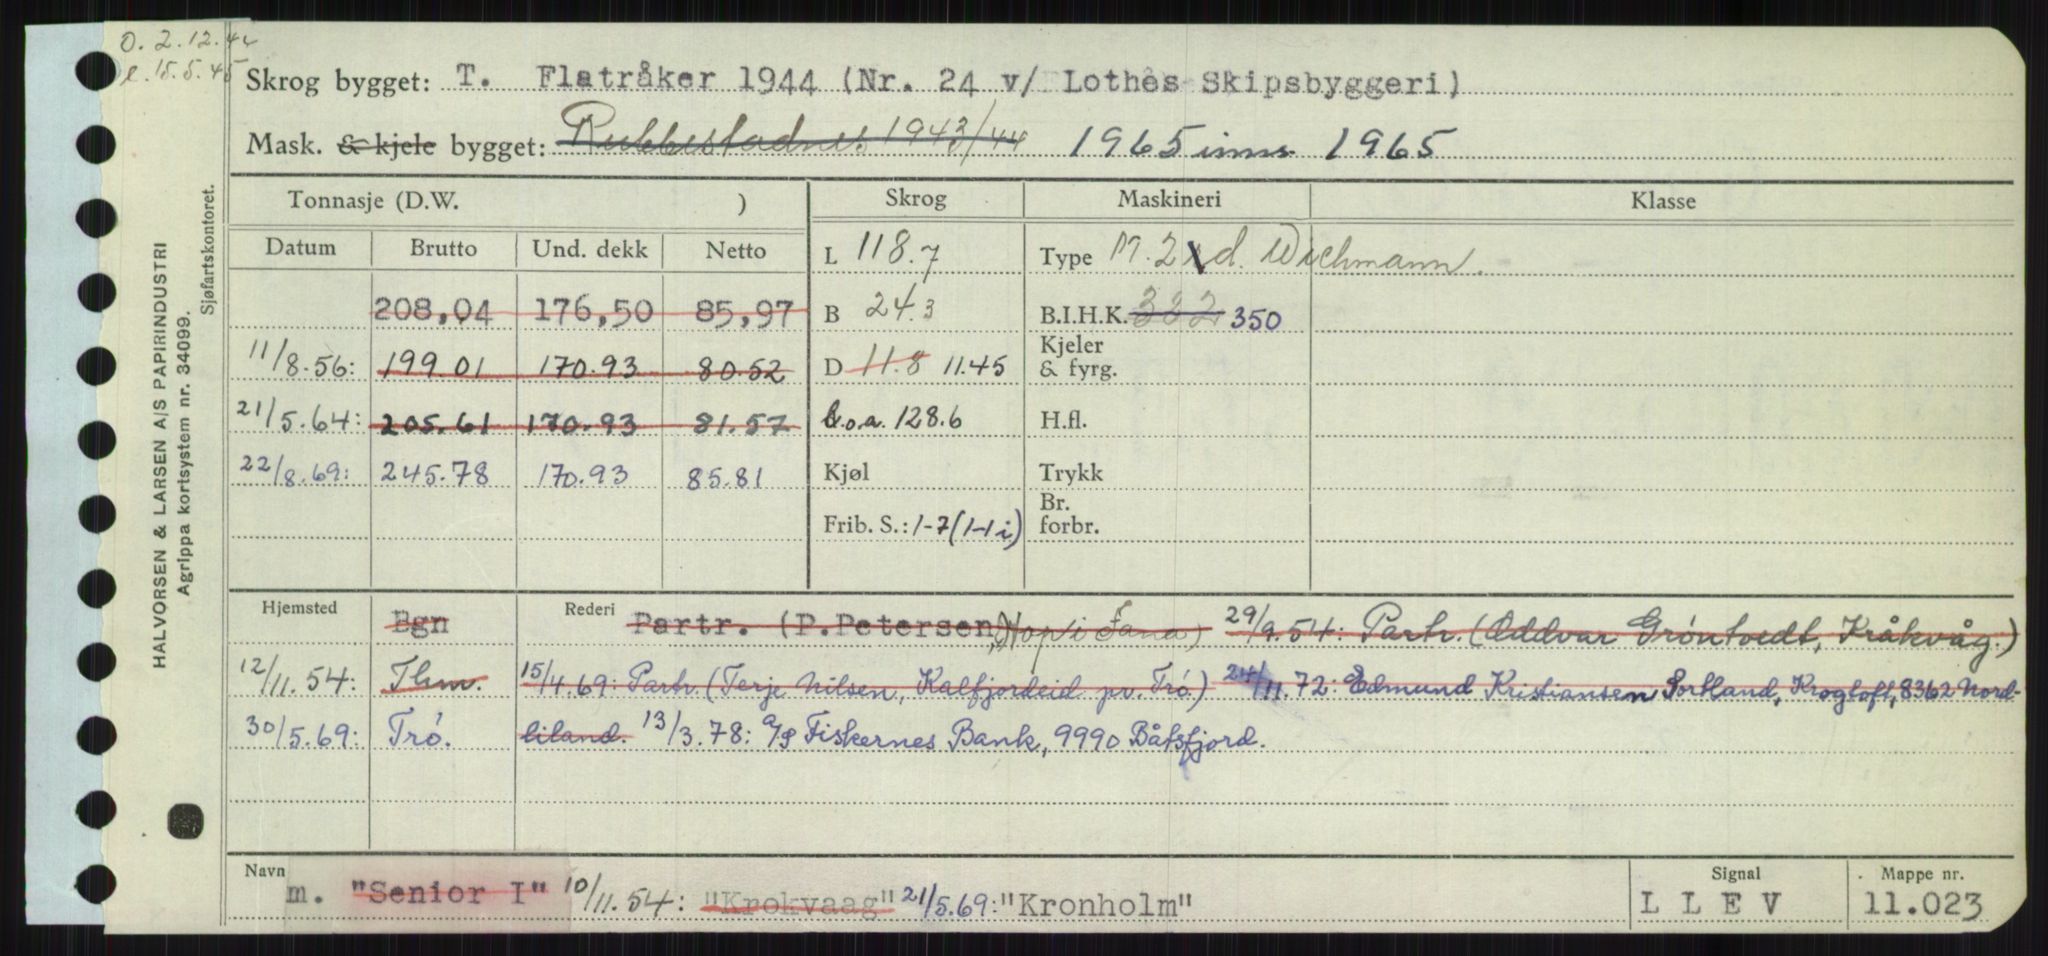 O. 2.12.44
l. 15.5.45
Skrog bygget: T. Flatråker 1944 (Nr. 24 v/ Lothes Skipsbyggeri)
Mask. & kjele bygget: Rubbestadnes 1943/44 1965 inns. 1965
HALVORSEN & LARSEN A/S PAPIRINDUSTRI
Agrippa kortsystem nr. 34099.
Sjøfartskontoret.
Tonnasje (D.W. ) Skrog Maskineri Klasse
Datum Brutto Und. dekk Netto L 118.7 Type M. 2 d. Wichmann.
208,04 176,50 85,97 B 24.3 B.I.H.K. 332 350
11/8.56: 199.01 170.93 80.52 D 11.8 11.45 Kjeler & fyrg.
21/5.64: 205.61 170.93 81.57 L.o.a. 128.6 H.fl.
22/8.69: 245.78 170.93 85.81 Kjøl Trykk
Frib. S.: 1-7 (1-1 i) Br. forbr.
Hjemsted Bgn Rederi Partr. (P.Petersen, Hop i Fana) 29/9.54: Partr. (Oddvar Grøntvedt, Kråkvåg.)
12/11.54: Thm. 15/4.69: Partr. (Terje Nilsen, Kalfjordeid pr. Trö.) 24/11.72: Edmund Kristiansen Portland, Krogtoft, 8362 Nord-
30/5.69: Trö. liland. 13/3.78: A/S Fiskernes Bank, 9990 Båtsfjord.
Navn m. "Senior I" 10/11.54: "Krokvaag" 21/5.69: "Kronholm" Signal LLEV Mappe nr. 11.023